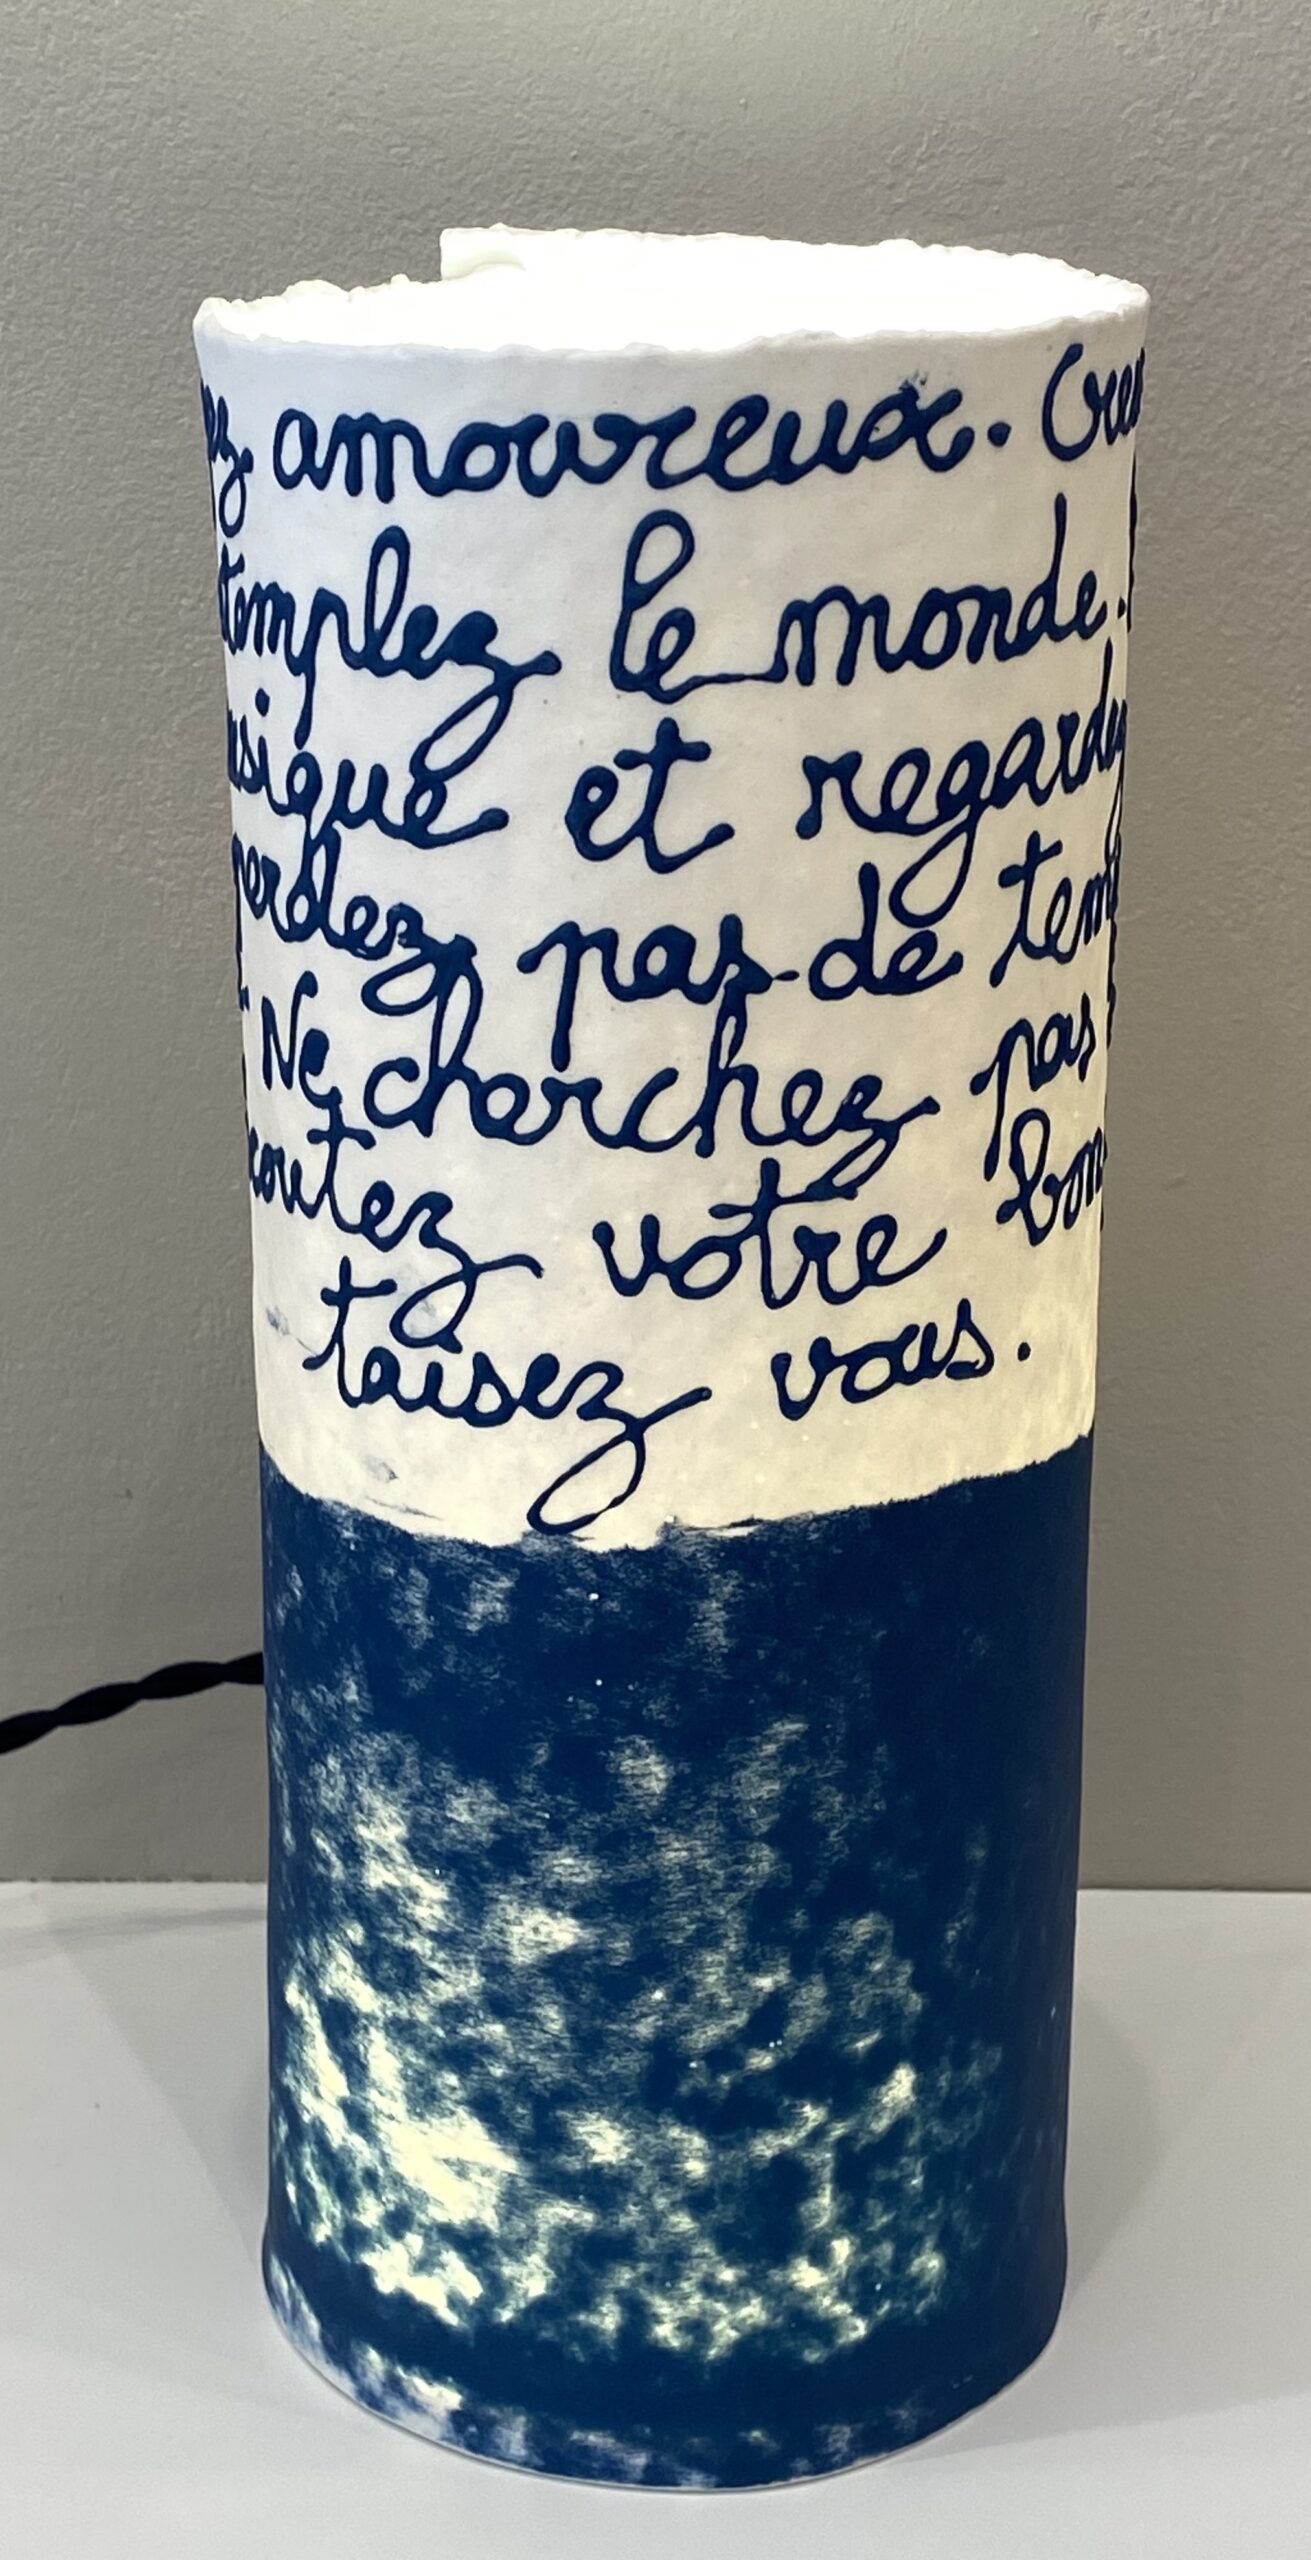 ez amoureux. Cre
templez le monde.
usique et regardez
perdez pas de temp
Ne cherchez pas
coutez votre bon
taisez vous.